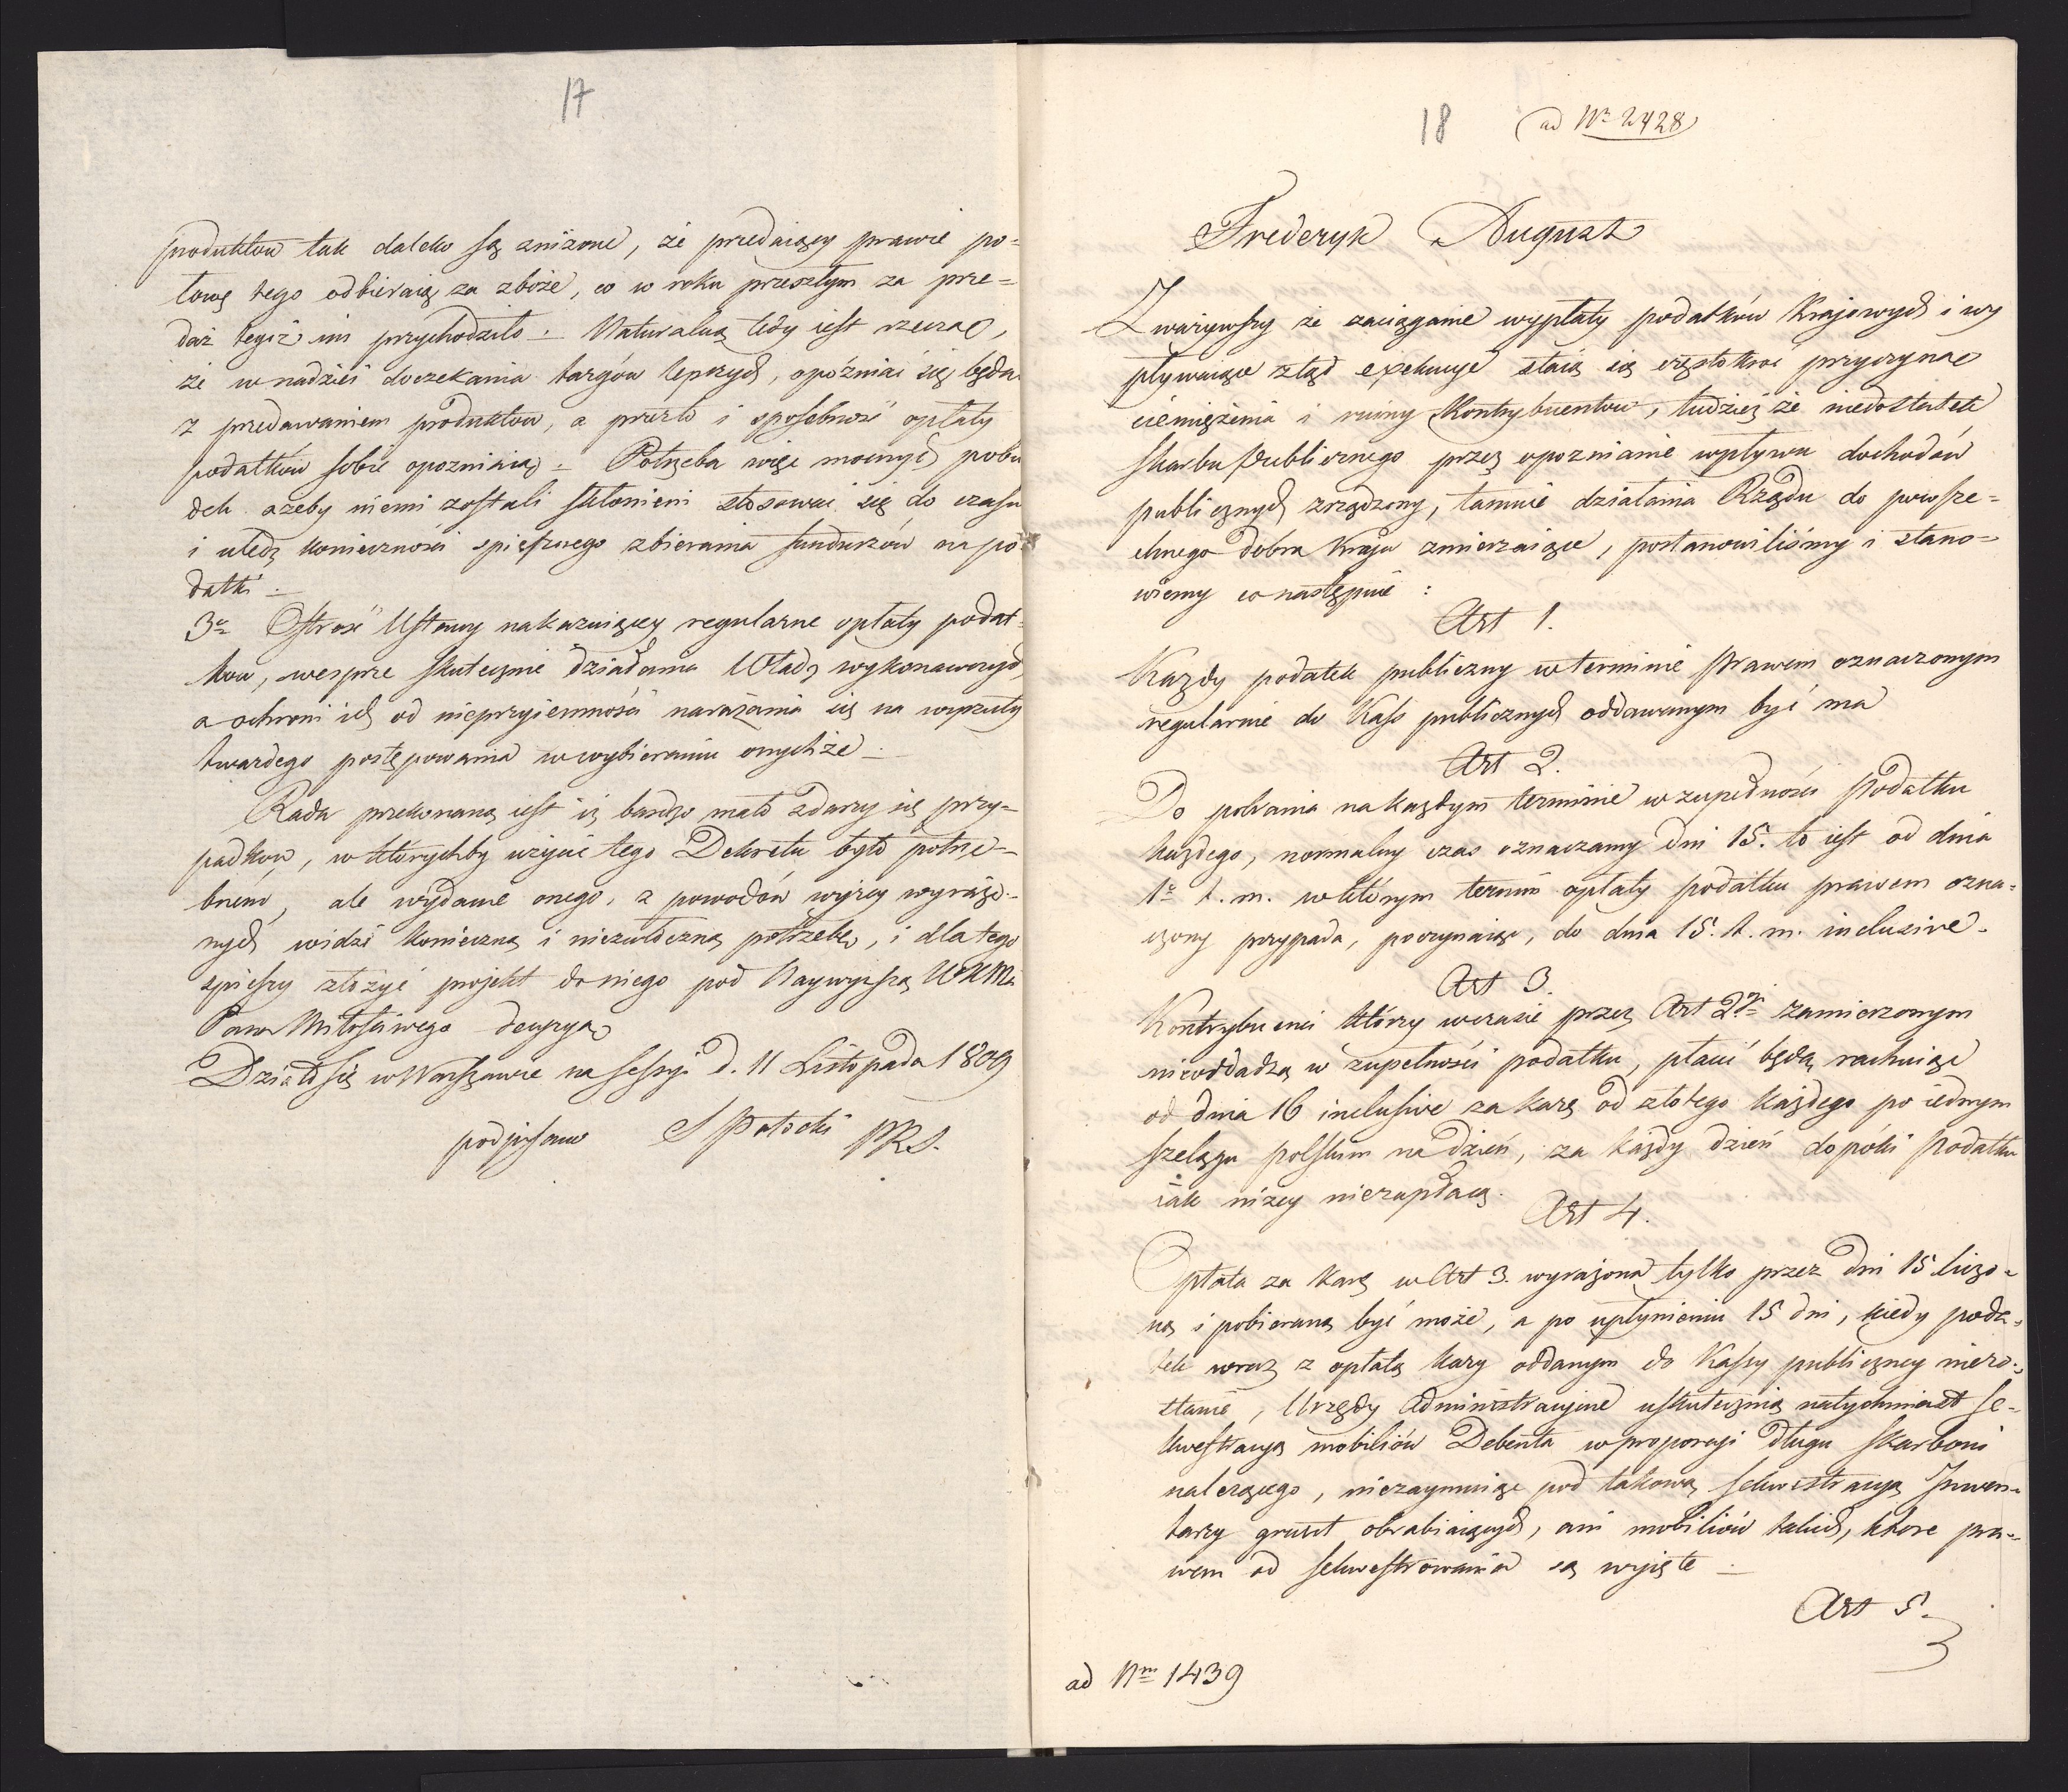 17
produktów tak daleko są zniżone, że przedaiący prawie po=
łowę tego odbieraią za zboże, co w roku przeszłym za prze=
daż tegiż im przychodziło. Naturalną tedy iest rzeczą,
że w nadziei doczekania targów lepszych, opóźniać się będą
z przedawaniem produktów, a przeto i sposobność opłaty
podatków sobie opozniaią = Potrzeba więc mocnych pobu
dek ażeby niemi zostali skłonieni stosować się do czasu
i uledz konieczności spiesznego zbierania funduszów na po
datki .
3o Ostrość Ustawy nakazuiącey regularne opłaty podat=
ków, wesprze skutecznie działania Władz wykonawczych
a ochroni ich od nieprzyiemności narażania się na wyrzuty
twardego postępowania w wybieraniu onychże .
Rada przekonaną iest iż bardzo mało zdarzy się przy=
padków, w którychby użycie tego Dekretu było potrze=
bnem, ale wydanie onego, z powodów wyżey wyrażo=
nych widzi konieczną i niezwłoczną potrzebę, i dla tego
spieszy złożyć projekt do niego pod Naywyższą WKMci
Pana Miłościwego decyzyą
Działo się w Warszawie na Sessyi d. 11 Listopada 1809
podpisano S Potocki PRS.
18 ad Nr 2428
Frederyk August
Zważywszy że zaciąganie wypłaty podatków Krajowych i wy
pływaiące ztąd exekucye staią się częstokroć przyczyną
ciemiężenia i ruiny Kontrybuentów, tudzież że niedostatek
Skarbu Publicznego przez opoznianie wpływu dochodów
publicznych zrządzony, tamuie działania Rządu do powsze=
chnego dobra Kraju zmierzaiące, postanowiliśmy i stano=
wiemy co następuie :
Art 1.
Każdy podatek publiczny w terminie prawem oznaczonym
regularnie do Kass publicznych oddawanym być ma
Art 2.
Do pobrania na każdym terminie w zupełności Podatku
każdego, normalny czas oznaczamy dni 15. to iest od dnia
1o t. m. w którym termin opłaty podatku prawem ozna=
czony przypada, poczynaiąc, do dnia 15. t. m. inclusive.
Art 3.
Kontrybuenci którzy w czasie przez Art 2gi zamierzonym
nieoddadzą w zupełności podatku, płacić będą rachuiąc
od dnia 16 inclusive za karę od złotego każdego po iednym
szelągu polskim na dzień, za każdy dzień dopóki Podatku
iak niżey niezapłacą.
Art 4.
Opłata za karę w Art 3. wyrażona tylko przez dni 15 liczo=
ną i pobieraną być może, a po upłynieniu 15 dni, kiedy poda=
tek wraz z opłatą kary oddanym do Kassy publiczney niezo=
stanie, Urzędy Administracyine uskutecznią natychmiast se=
kwestracyą mobiliów Debenta w proporcyi długu skarbowi
należącego, niezaymuiąc pod takową sekwestracyą Inwen=
tarzy grunt obrabiaiących, ani mobiliów takich, które pra=
wem od sekwestrowania są wyięte .
Art 5.
ad Nm 1439